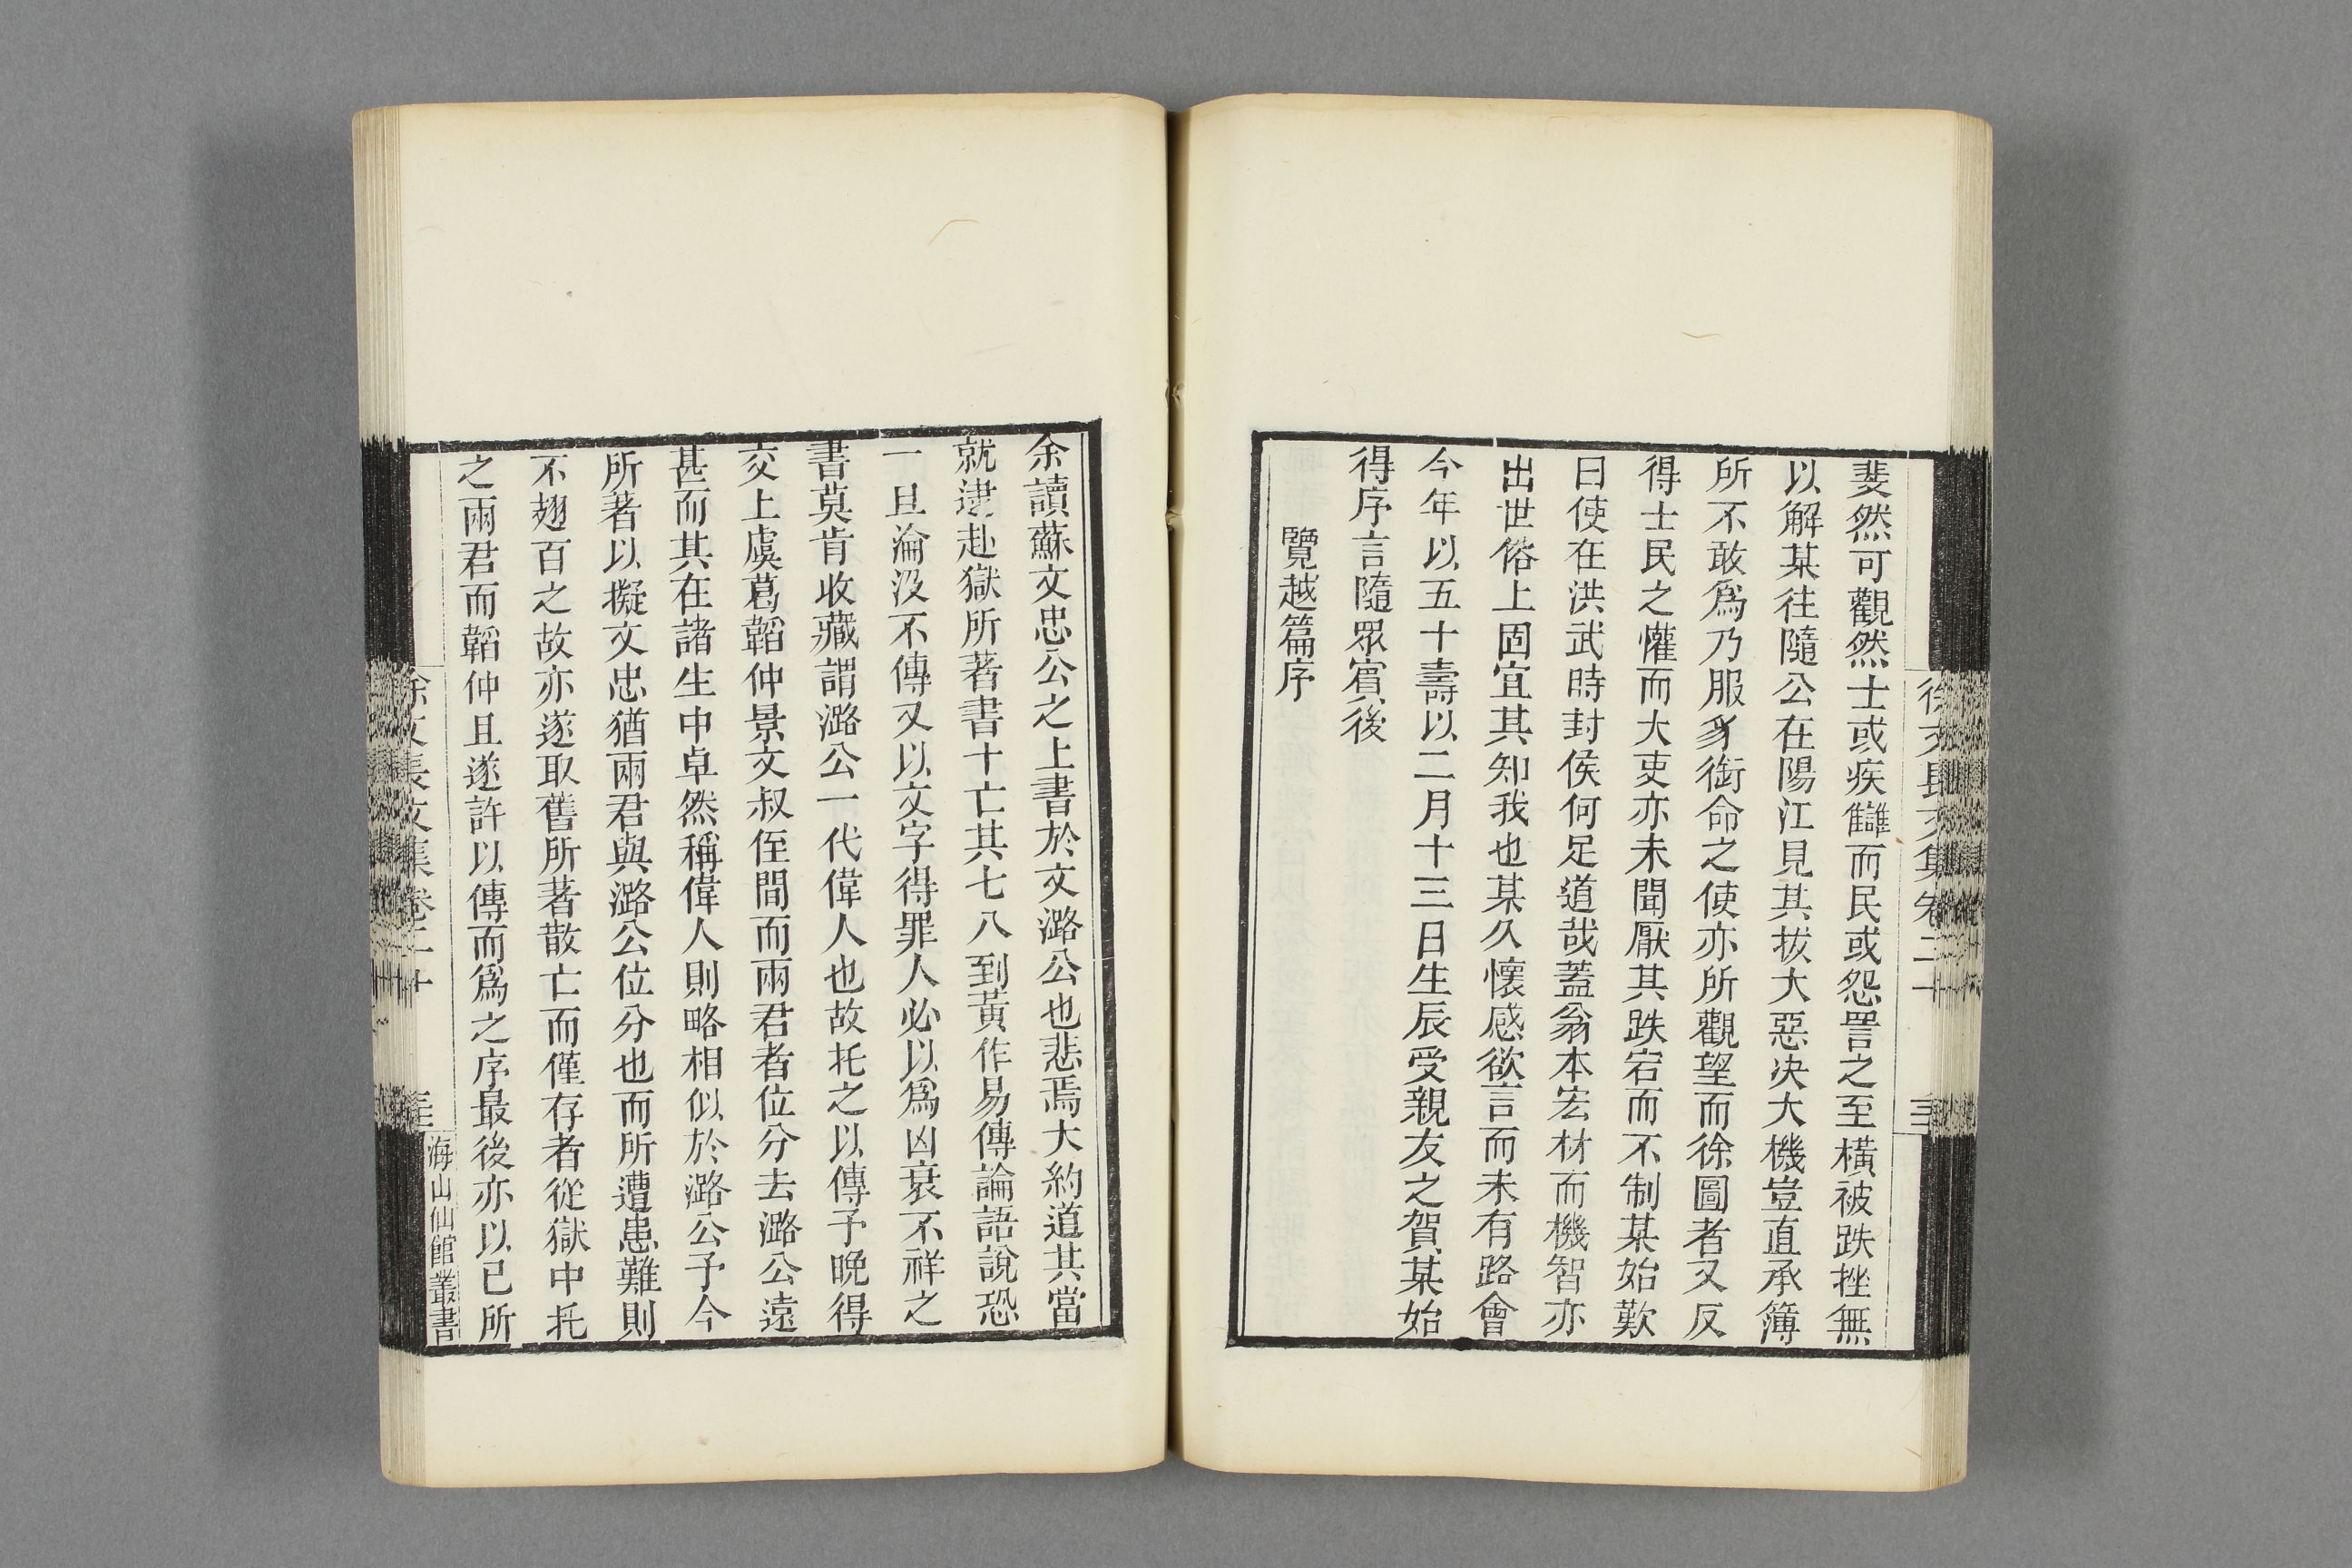 斐然可觀然士或疾讎而民或怨詈之至橫被跌挫無
以解某往隨公在陽江見其拔大惡決大機豈直承簿
所不敢爲乃服豸銜命之使亦所觀望而徐圖者又反
得士民之懽而大吏亦未聞厭其跌宕而不制某始歎
曰使在洪武時封侯何足道哉蓋翁本宏材而機智亦
出世俗上固宜其知我也某久懷感欲言而未有路會
今年以五十壽以二月十三日生辰受親友之賀某始
得序言隨眾賓後
覽越篇序
余讀蘇文忠公之上書於文潞公也悲焉大約道其當
就逮赴獄所著書十亡其七八到黃作易傳論語說恐
一旦淪沒不傳又以文字得罪人必以爲凶衰不祥之
書莫肯收藏謂潞公一代偉人也故托之以傳予晚得
交上虞葛韜仲景文叔侄間而兩君者位分去潞公遠
甚而其在諸生中卓然稱偉人則略相似於潞公予今
所著以擬文忠猶兩君與潞公位分也而所遭患難則
不翅百之故亦遂取舊所著散亡而僅存者從獄中托
之兩君而韜仲且遂許以傳而爲之序最後亦以己所
徐文長文集卷二十
海山仙館叢書